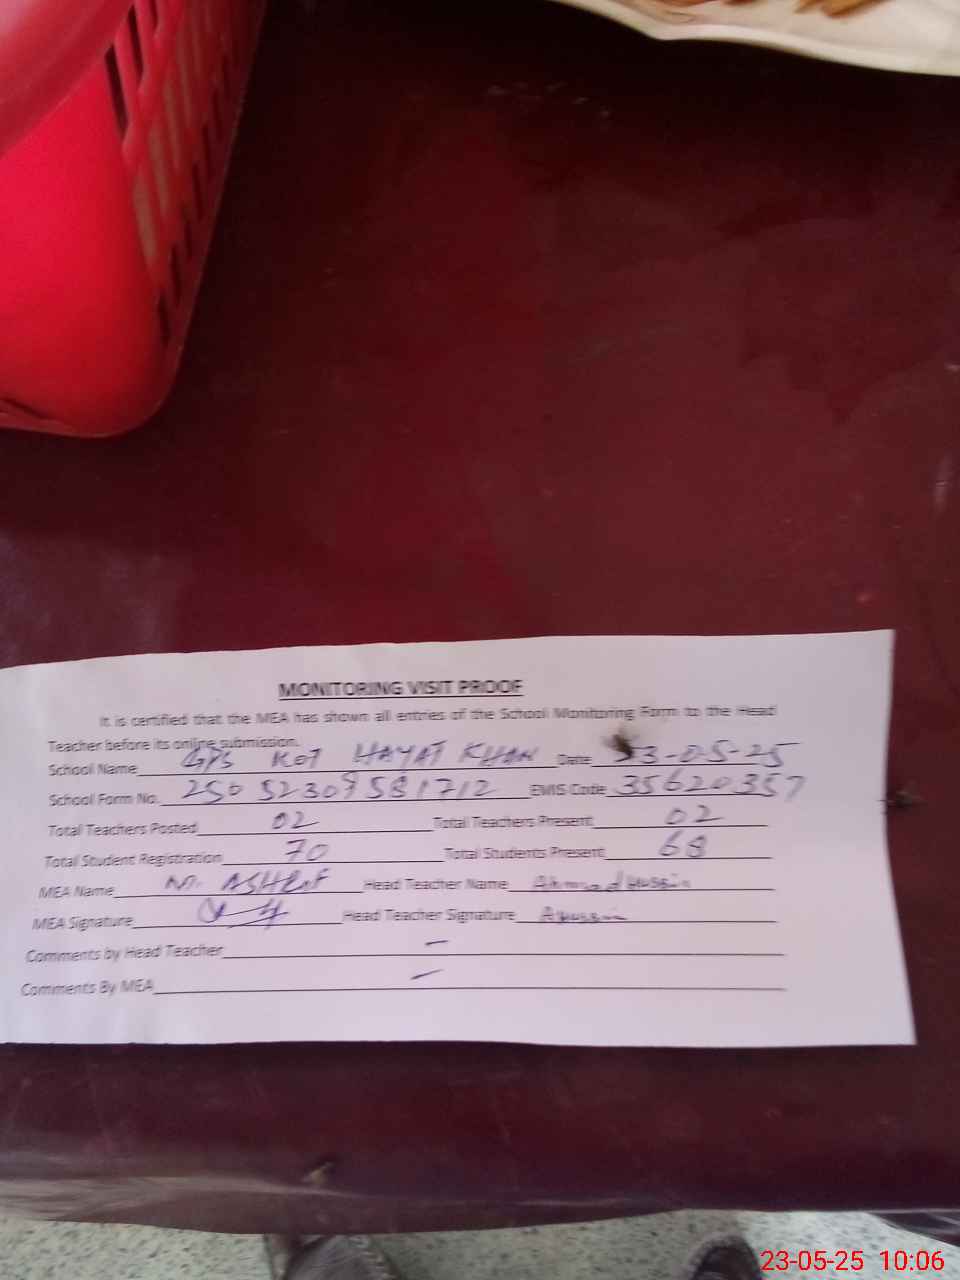 MONITORING VISIT PROOF
It is certified that the MEA has shown all entries of the School Monitoring Form to the Head
Teacher before its online submission.
School Name GPS KOT HAYAT KHAN Date 3-05-25
School Form No. 25052309581712 EMIS Code 35620357
Total Teachers Posted 02 Total Teachers Present 02
Total Student Registration 70 Total Students Present 68
MEA Name M. ASHRAF Head Teacher Name Ahmad Hussain
MEA Signature Head Teacher Signature AHussain
Comments by Head Teacher –
Comments By MEA –
23-05-25 10:06